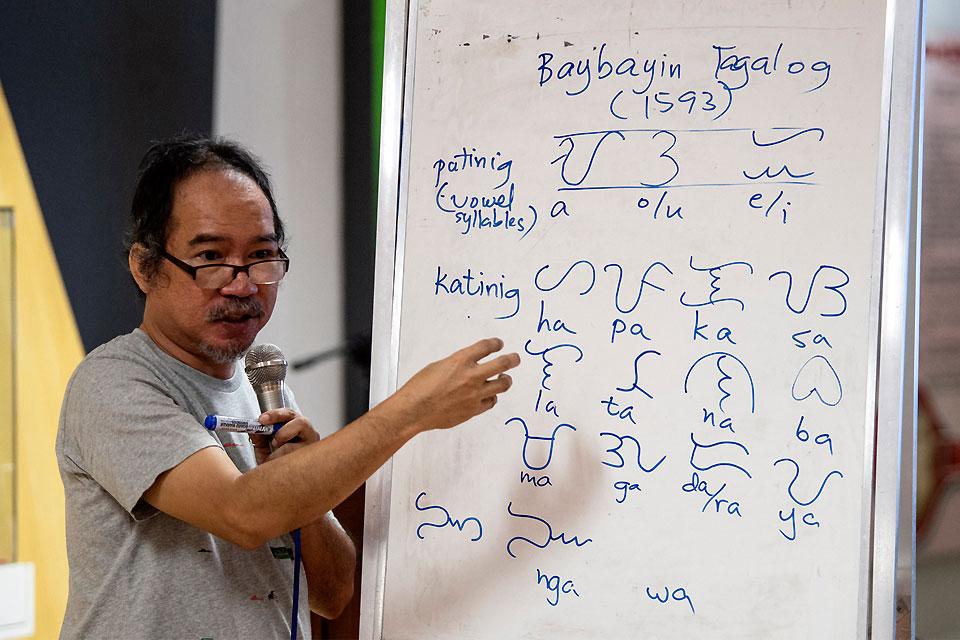 Baybayin Tagalog
(1593)
patinig ᜀ ᜂ ᜁ
(vowel syllables) a o/u e/i
katinig ᜑ ᜉ ᜃ ᜐ
ha pa ka sa
ᜎ ᜆ ᜈ ᜊ
la ta na ba
ᜋ ᜄ ᜇ ᜌ
ma ga da/ra ya
ᜅ ᜅ
nga wa